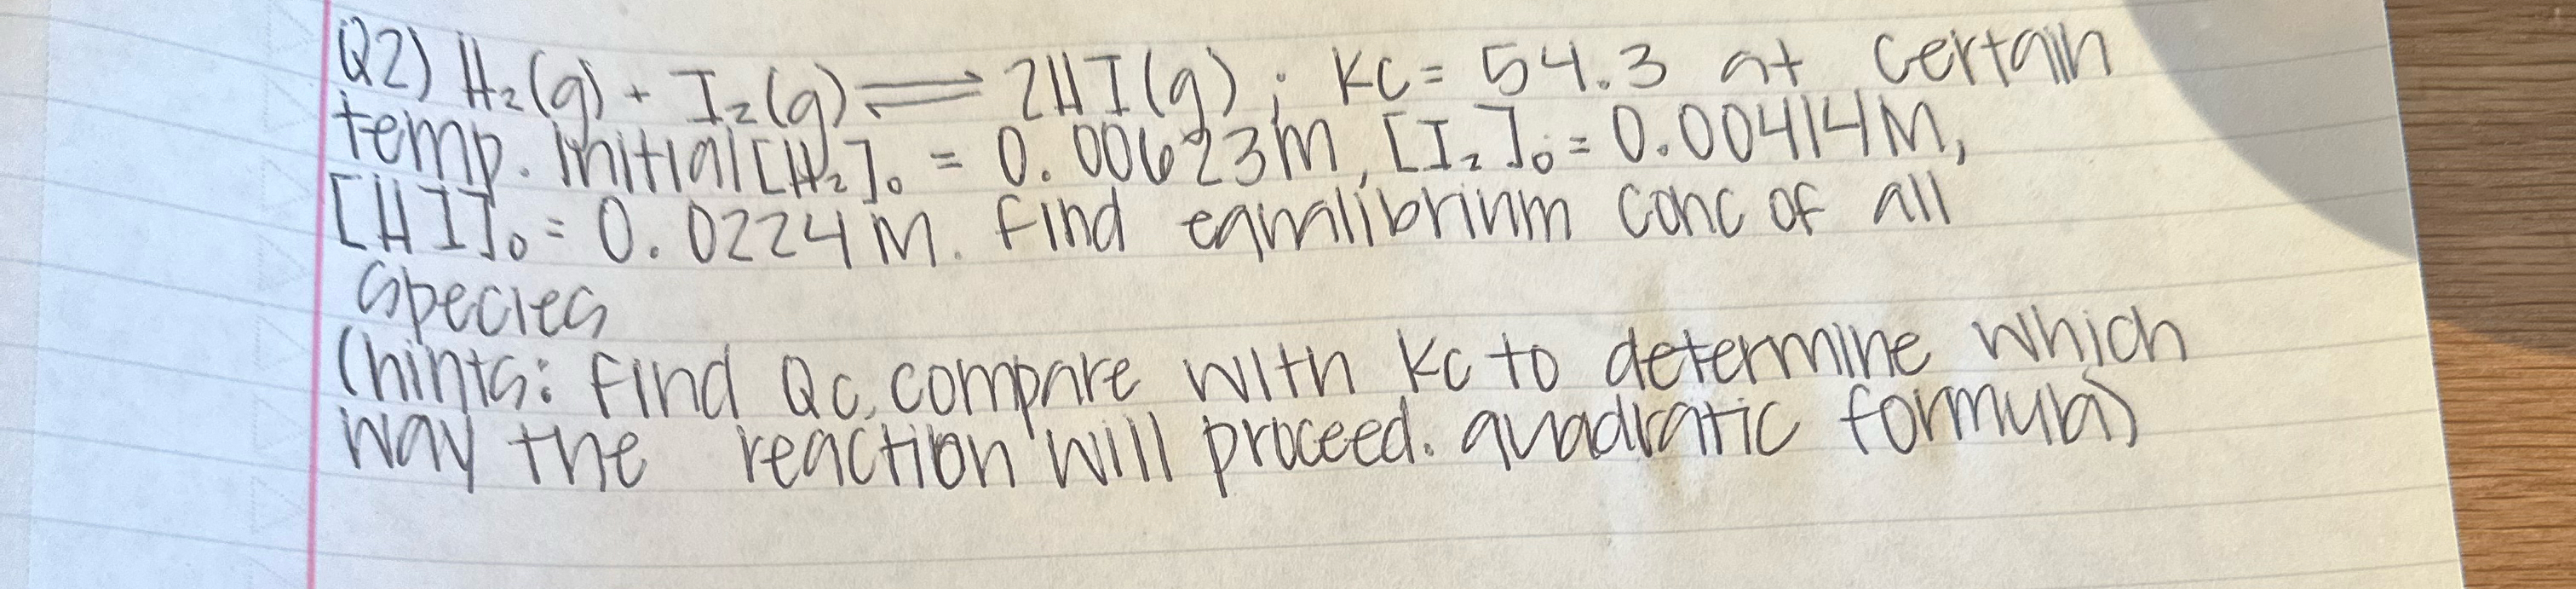 Q2) H₂(g) + I₂(g) ⇌ 2HI(g); Kc = 54.3 at certain
temp. initial [H₂]₀ = 0.00623M, [I₂]₀ = 0.00414M,
[HI]₀ = 0.0224M. find equilibrium conc of all
species
(hints: find Qc, compare with Kc to determine which
way the reaction will proceed. quadratic formula)